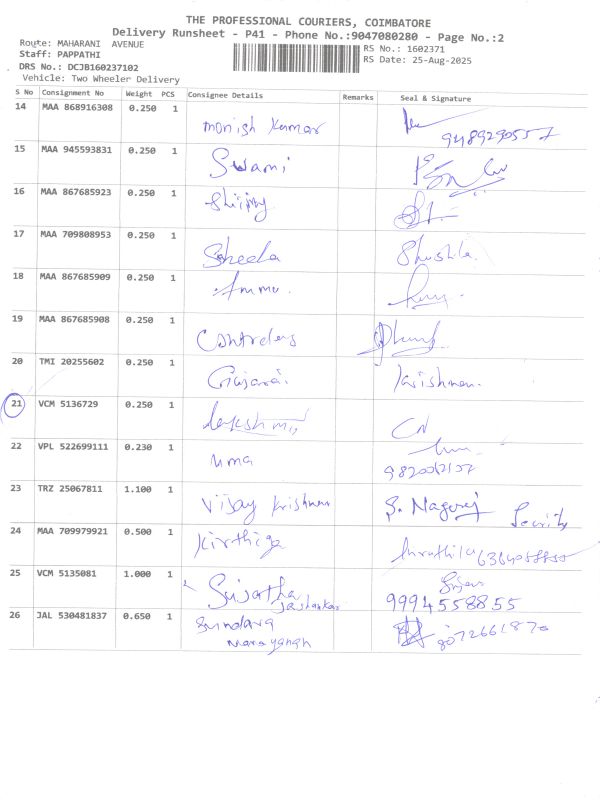 THE PROFESSIONAL COURIERS, COIMBATORE
Delivery Runsheet - P41 - Phone No.:9047080280 - Page No.:2
Route: MAHARANI AVENUE
RS No.: 1602371
Staff: PAPPATHI
RS Date: 25-Aug-2025
DRS No.: DCJB160237102
Vehicle: Two Wheeler Delivery
S No Consignment No Weight PCS Consignee Details Remarks Seal & Signature
14 MAA 868916308 0.250 1 monish kumar
15 MAA 945593831 0.250 1 Swami
16 MAA 867685923 0.250 1
17 MAA 709808953 0.250 1 Sheela Shushila
18 MAA 867685909 0.250 1 Ammu.
19 MAA 867685908 0.250 1
20 TMI 20255602 0.250 1 krishnan.
21 VCM 5136729 0.250 1 lakshmi
22 VPL 522699111 0.230 1 uma
23 TRZ 25067811 1.100 1 Vijay Krishnan S. Nagaraj
24 MAA 709979921 0.500 1 Kirthiga
25 VCM 5135081 1.000 1 Sujatha
9994558855
26 JAL 530481837 0.650 1 Sundara
Narayanan